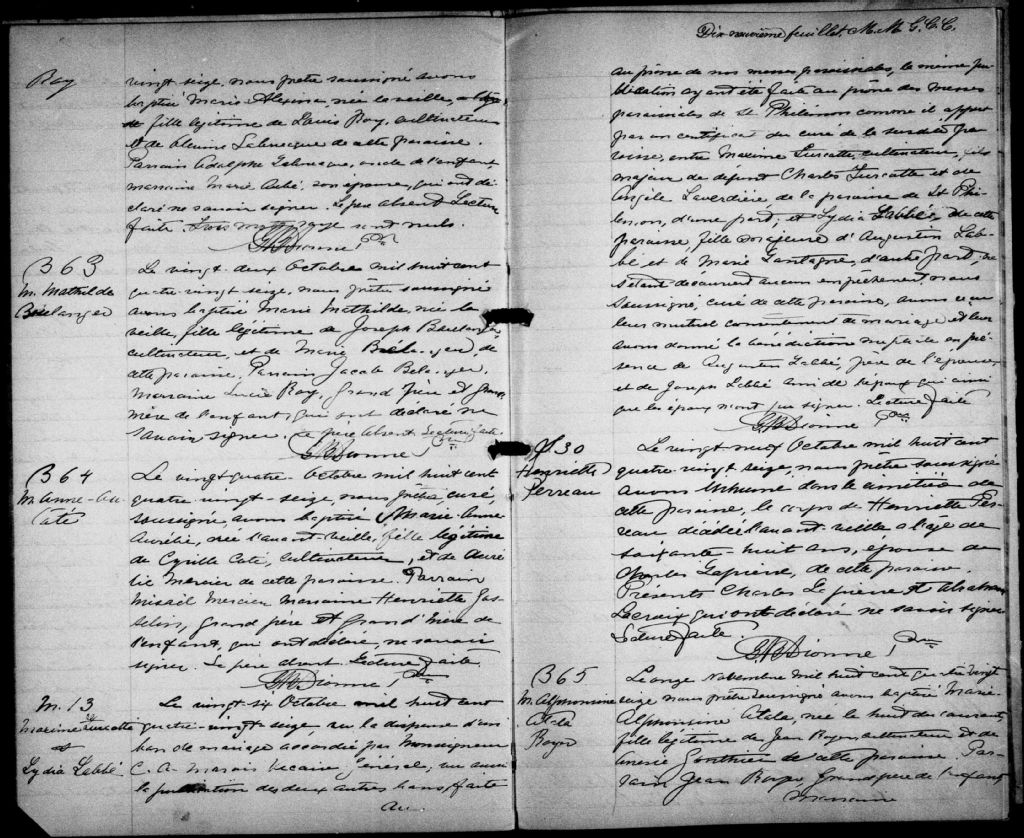 Roy
vingt seize, nous prêtre soussigné avons
baptisé Marie Alexina née la veille,
fille légitime de Louis Roy, cultivateur
et de Lebrecque de cette paroisse.
Parrain Adolphe Labrecque, oncle de l'enfant
marraine Marie Aubé, son épouse, qui ont dé-
claré ne savoir signer. Le père absent Lecture
faite. Trois mots rayés sont nuls.
Dionne Ptre
B 63
M. Mathilde
Boulanger
Le vingt-deux Octobre mil huit cent
quatre-vingt seize, nous prêtre soussigné
avons baptisé Marie Mathilde, née la
veille, fille légitime de Joseph Boulanger
cultivateur, et de Marie Bélanger, de
cette paroisse. Parrain Jacob Belanger,
Marraine Lucie Roy, Grand Père et Grand
mère de l'enfant, qui ont déclaré ne
savoir signer. Le père absent Lecture faite.
Dionne Ptre
B 64
M. Anne-Au-
Coté
Le vingt-quatre Octobre mil huit cent
quatre-vingt-seize, nous prêtre curé,
soussigné avons baptisé Marie Anne
Aurélie, née l'avant-veille, fille légitime
de Cyrille Coté, cultivateur, et de Auré-
lie Mercier de cette paroisse. Parrain
Misaël Mercier Marraine Henriette Gos-
selin, Grand père et Grand'Mère de
l'enfant, qui ont déclaré, ne savoir
signer. Le père absent. Lecture faite.
Dionne Ptre
M. 13
Maxime Turcotte
et
Lydia Labbé
Le vingt six Octobre mil huit cent
quatre-vingt seize, vu la dispense d'un
ban de mariage accordée par Monseigneur
C. A. Marois Vicaire Général; vu aussi
la publication des deux autres bans, faite
au
Dix neuvième feuillet. M. M. G. C. C.
au prône de nos messes paroissiales, la même pu-
blication ayant été faite au prône des messes
paroissiales de St Philémon comme il appert
par un certificat du curé de la susdite pa-
roisse, entre Maxime Turcotte, cultivateur, fils
majeur de défunt Charles Turcotte et de
Angèle Laverdière de la paroisse de St Phi-
lémon, d'une part; et Lydia Labbé, de cette
paroisse, fille majeure d'Augustin Lab-
bé et de Marie Lantagne, d'autre part; ne
s'étant découvert aucun empêchement, nous
soussigné, curé de cette paroisse, avons reçu
leur mutuel consentement de mariage et leur
avons donné la bénédiction nuptiale en pré-
sence de Augustin Labbé, père de l'épouse
et de Joseph Labbé ami de l'époux qui ainsi
que les époux n'ont pu signer. Lecture faite
Dionne Ptre
S 30
Henriette
Perreau
Le vingt-neuf Octobre mil huit cent
quatre-vingt seize, nous prêtre soussigné
avons inhumé dans le cimetière de
cette paroisse, le corps de Henriette Per-
reau décédée l'avant-veille à l'âge de
soixante-huit ans, épouse de
Charles Lapierre, de cette paroisse.
Présents Charles Lapierre et Abraham
Lacroix qui ont déclaré ne savoir signer
Lecture faite.
Dionne Ptre
B 65
M. Alphonsine
Alda
Royer
Le onze Novembre mil huit cent quatre vingt
seize nous prêtre soussigné avons baptisé Marie
Alphonsine Alda, née le huit du courant,
fille légitime de Jean Royer cultivateur et de
Gonthier de cette paroisse. Par-
rain Jean Royer Grand père de l'enfant,
marraine